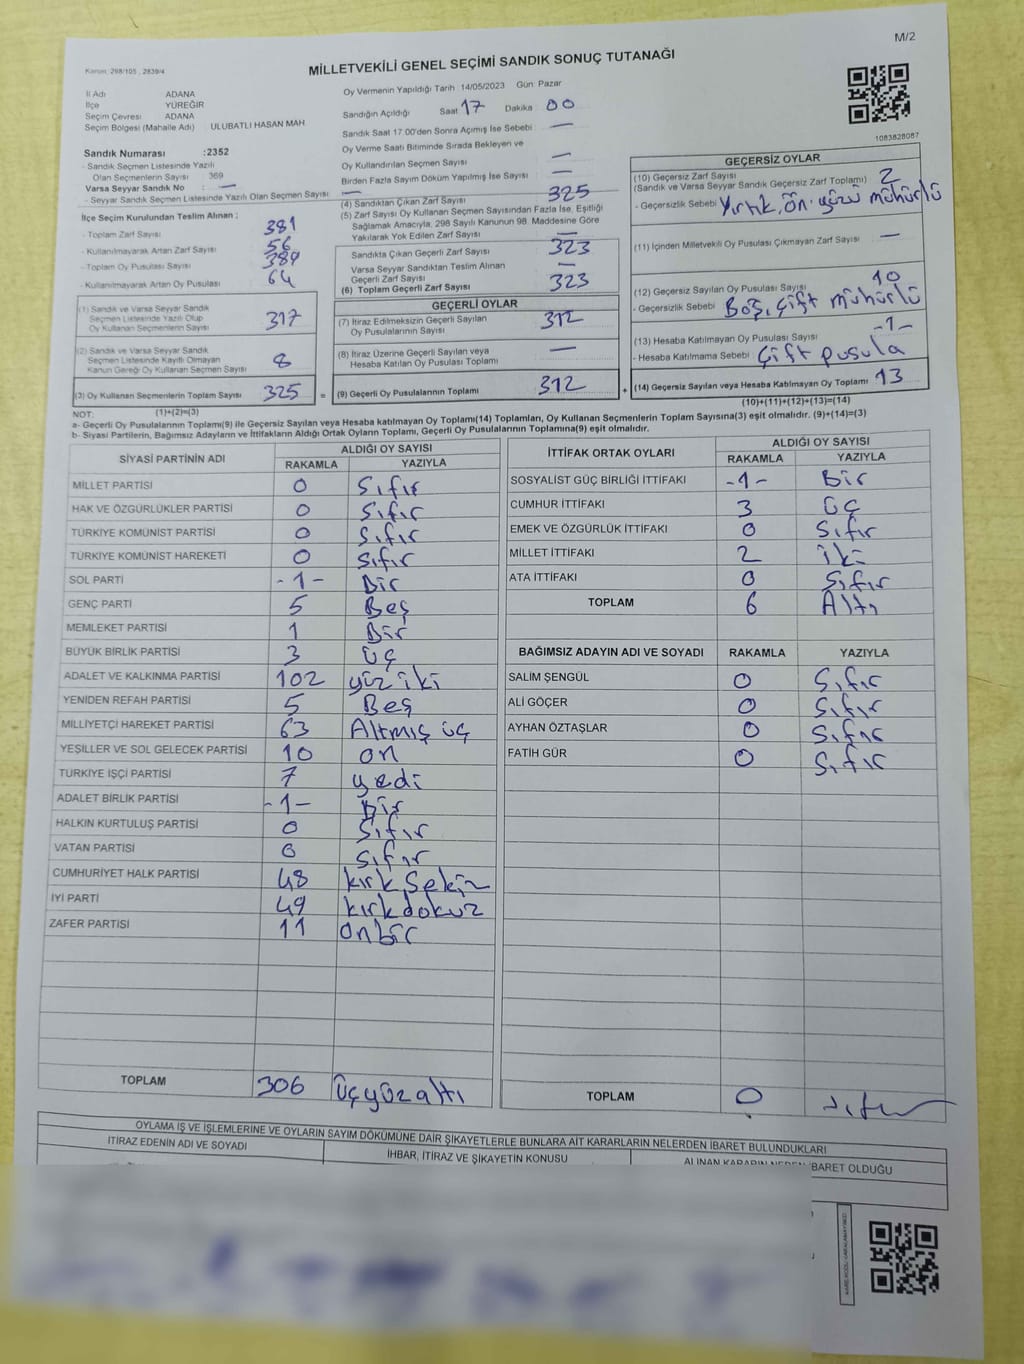 M/2
Kanun: 298/105 , 2839/4
MİLLETVEKİLİ GENEL SEÇİMİ SANDIK SONUÇ TUTANAĞI
İl Adı ADANA
İlçe YÜREĞİR
Seçim Çevresi ADANA
Seçim Bölgesi (Mahalle Adı) ULUBATLI HASAN MAH
Sandık Numarası :2352
- Sandık Seçmen Listesinde Yazılı
Olan Seçmenlerin Sayısı 369
Varsa Seyyar Sandık No : —
- Seyyar Sandık Seçmen Listesinde Yazılı Olan Seçmen Sayısı : —
İlçe Seçim Kurulundan Teslim Alınan ;
- Toplam Zarf Sayısı 381
- Kullanılmayarak Artan Zarf Sayısı 56
- Toplam Oy Pusulası Sayısı 389
- Kullanılmayarak Artan Oy Pusulası 64
(1) Sandık ve Varsa Seyyar Sandık
Seçmen Listesinde Yazılı Olup
Oy Kullanan Seçmenlerin Sayısı 317
(2) Sandık ve Varsa Seyyar Sandık
Seçmen Listesinde Kayıtlı Olmayan
Kanun Gereği Oy Kullanan Seçmen Sayısı 8
(3) Oy Kullanan Seçmenlerin Toplam Sayısı 325
Oy Vermenin Yapıldığı Tarih 14/05/2023 Gün: Pazar
Sandığın Açıldığı Saat 17 Dakika 00
Sandık Saat 17:00'den Sonra Açılmış İse Sebebi —
Oy Verme Saati Bitiminde Sırada Bekleyen ve
Oy Kullandırılan Seçmen Sayısı —
Birden Fazla Sayım Döküm Yapılmış İse Sayısı —
(4) Sandıktan Çıkan Zarf Sayısı 325
(5) Zarf Sayısı Oy Kullanan Seçmen Sayısından Fazla İse, Eşitliği
Sağlamak Amacıyla, 298 Sayılı Kanunun 98. Maddesine Göre
Yakılarak Yok Edilen Zarf Sayısı —
Sandıkta Çıkan Geçerli Zarf Sayısı 323
Varsa Seyyar Sandıktan Teslim Alınan
Geçerli Zarf Sayısı —
(6) Toplam Geçerli Zarf Sayısı 323
GEÇERLİ OYLAR
(7) İtiraz Edilmeksizin Geçerli Sayılan
Oy Pusulalarının Sayısı 312
(8) İtiraz Üzerine Geçerli Sayılan veya
Hesaba Katılan Oy Pusulası Toplamı —
= (9) Geçerli Oy Pusulalarının Toplamı 312 +
1083828087
GEÇERSİZ OYLAR
(10) Geçersiz Zarf Sayısı
(Sandık ve Varsa Seyyar Sandık Geçersiz Zarf Toplamı) 2
- Geçersizlik Sebebi Yırtık, Ön yüzü mühürlü
(11) İçinden Milletvekili Oy Pusulası Çıkmayan Zarf Sayısı —
(12) Geçersiz Sayılan Oy Pusulası Sayısı 10
- Geçersizlik Sebebi Boş, Çift mühürlü
(13) Hesaba Katılmayan Oy Pusulası Sayısı -1-
- Hesaba Katılmama Sebebi Çift pusula
(14) Geçersiz Sayılan veya Hesaba Katılmayan Oy Toplamı 13
(10)+(11)+(12)+(13)=(14)
NOT: (1)+(2)=(3)
a- Geçerli Oy Pusulalarının Toplamı(9) ile Geçersiz Sayılan veya Hesaba katılmayan Oy Toplamı(14) Toplamları, Oy Kullanan Seçmenlerin Toplam Sayısına(3) eşit olmalıdır. (9)+(14)=(3)
b- Siyasi Partilerin, Bağımsız Adayların ve İttifakların Aldığı Ortak Oyların Toplamı, Geçerli Oy Pusulalarının Toplamına(9) eşit olmalıdır.
SİYASİ PARTİNİN ADI ALDIĞI OY SAYISI
RAKAMLA YAZIYLA
MİLLET PARTİSİ 0 Sıfır
HAK VE ÖZGÜRLÜKLER PARTİSİ 0 Sıfır
TÜRKİYE KOMÜNİST PARTİSİ 0 Sıfır
TÜRKİYE KOMÜNİST HAREKETİ 0 Sıfır
SOL PARTİ -1- Bir
GENÇ PARTİ 5 Beş
MEMLEKET PARTİSİ 1 Bir
BÜYÜK BİRLİK PARTİSİ 3 Üç
ADALET VE KALKINMA PARTİSİ 102 yüz iki
YENİDEN REFAH PARTİSİ 5 Beş
MİLLİYETÇİ HAREKET PARTİSİ 63 Altmış üç
YEŞİLLER VE SOL GELECEK PARTİSİ 10 on
TÜRKİYE İŞÇİ PARTİSİ 7 yedi
ADALET BİRLİK PARTİSİ -1- Bir
HALKIN KURTULUŞ PARTİSİ 0 Sıfır
VATAN PARTİSİ 0 Sıfır
CUMHURİYET HALK PARTİSİ 48 kırk sekiz
İYİ PARTİ 49 kırk dokuz
ZAFER PARTİSİ 11 onbir
TOPLAM 306 üçyüzaltı
İTTİFAK ORTAK OYLARI ALDIĞI OY SAYISI
RAKAMLA YAZIYLA
SOSYALİST GÜÇ BİRLİĞİ İTTİFAKI -1- Bir
CUMHUR İTTİFAKI 3 üç
EMEK VE ÖZGÜRLÜK İTTİFAKI 0 Sıfır
MİLLET İTTİFAKI 2 iki
ATA İTTİFAKI 0 Sıfır
TOPLAM 6 Altı
BAĞIMSIZ ADAYIN ADI VE SOYADI RAKAMLA YAZIYLA
SALİM ŞENGÜL 0 Sıfır
ALİ GÖÇER 0 Sıfır
AYHAN ÖZTAŞLAR 0 Sıfır
FATİH GÜR 0 Sıfır
TOPLAM 0 sıfır
OYLAMA İŞ VE İŞLEMLERİNE VE OYLARIN SAYIM DÖKÜMÜNE DAİR ŞİKAYETLERLE BUNLARA AİT KARARLARIN NELERDEN İBARET BULUNDUKLARI
İTİRAZ EDENİN ADI VE SOYADI İHBAR, İTİRAZ VE ŞİKAYETİN KONUSU ALINAN KARARIN NEDEN İBARET OLDUĞU